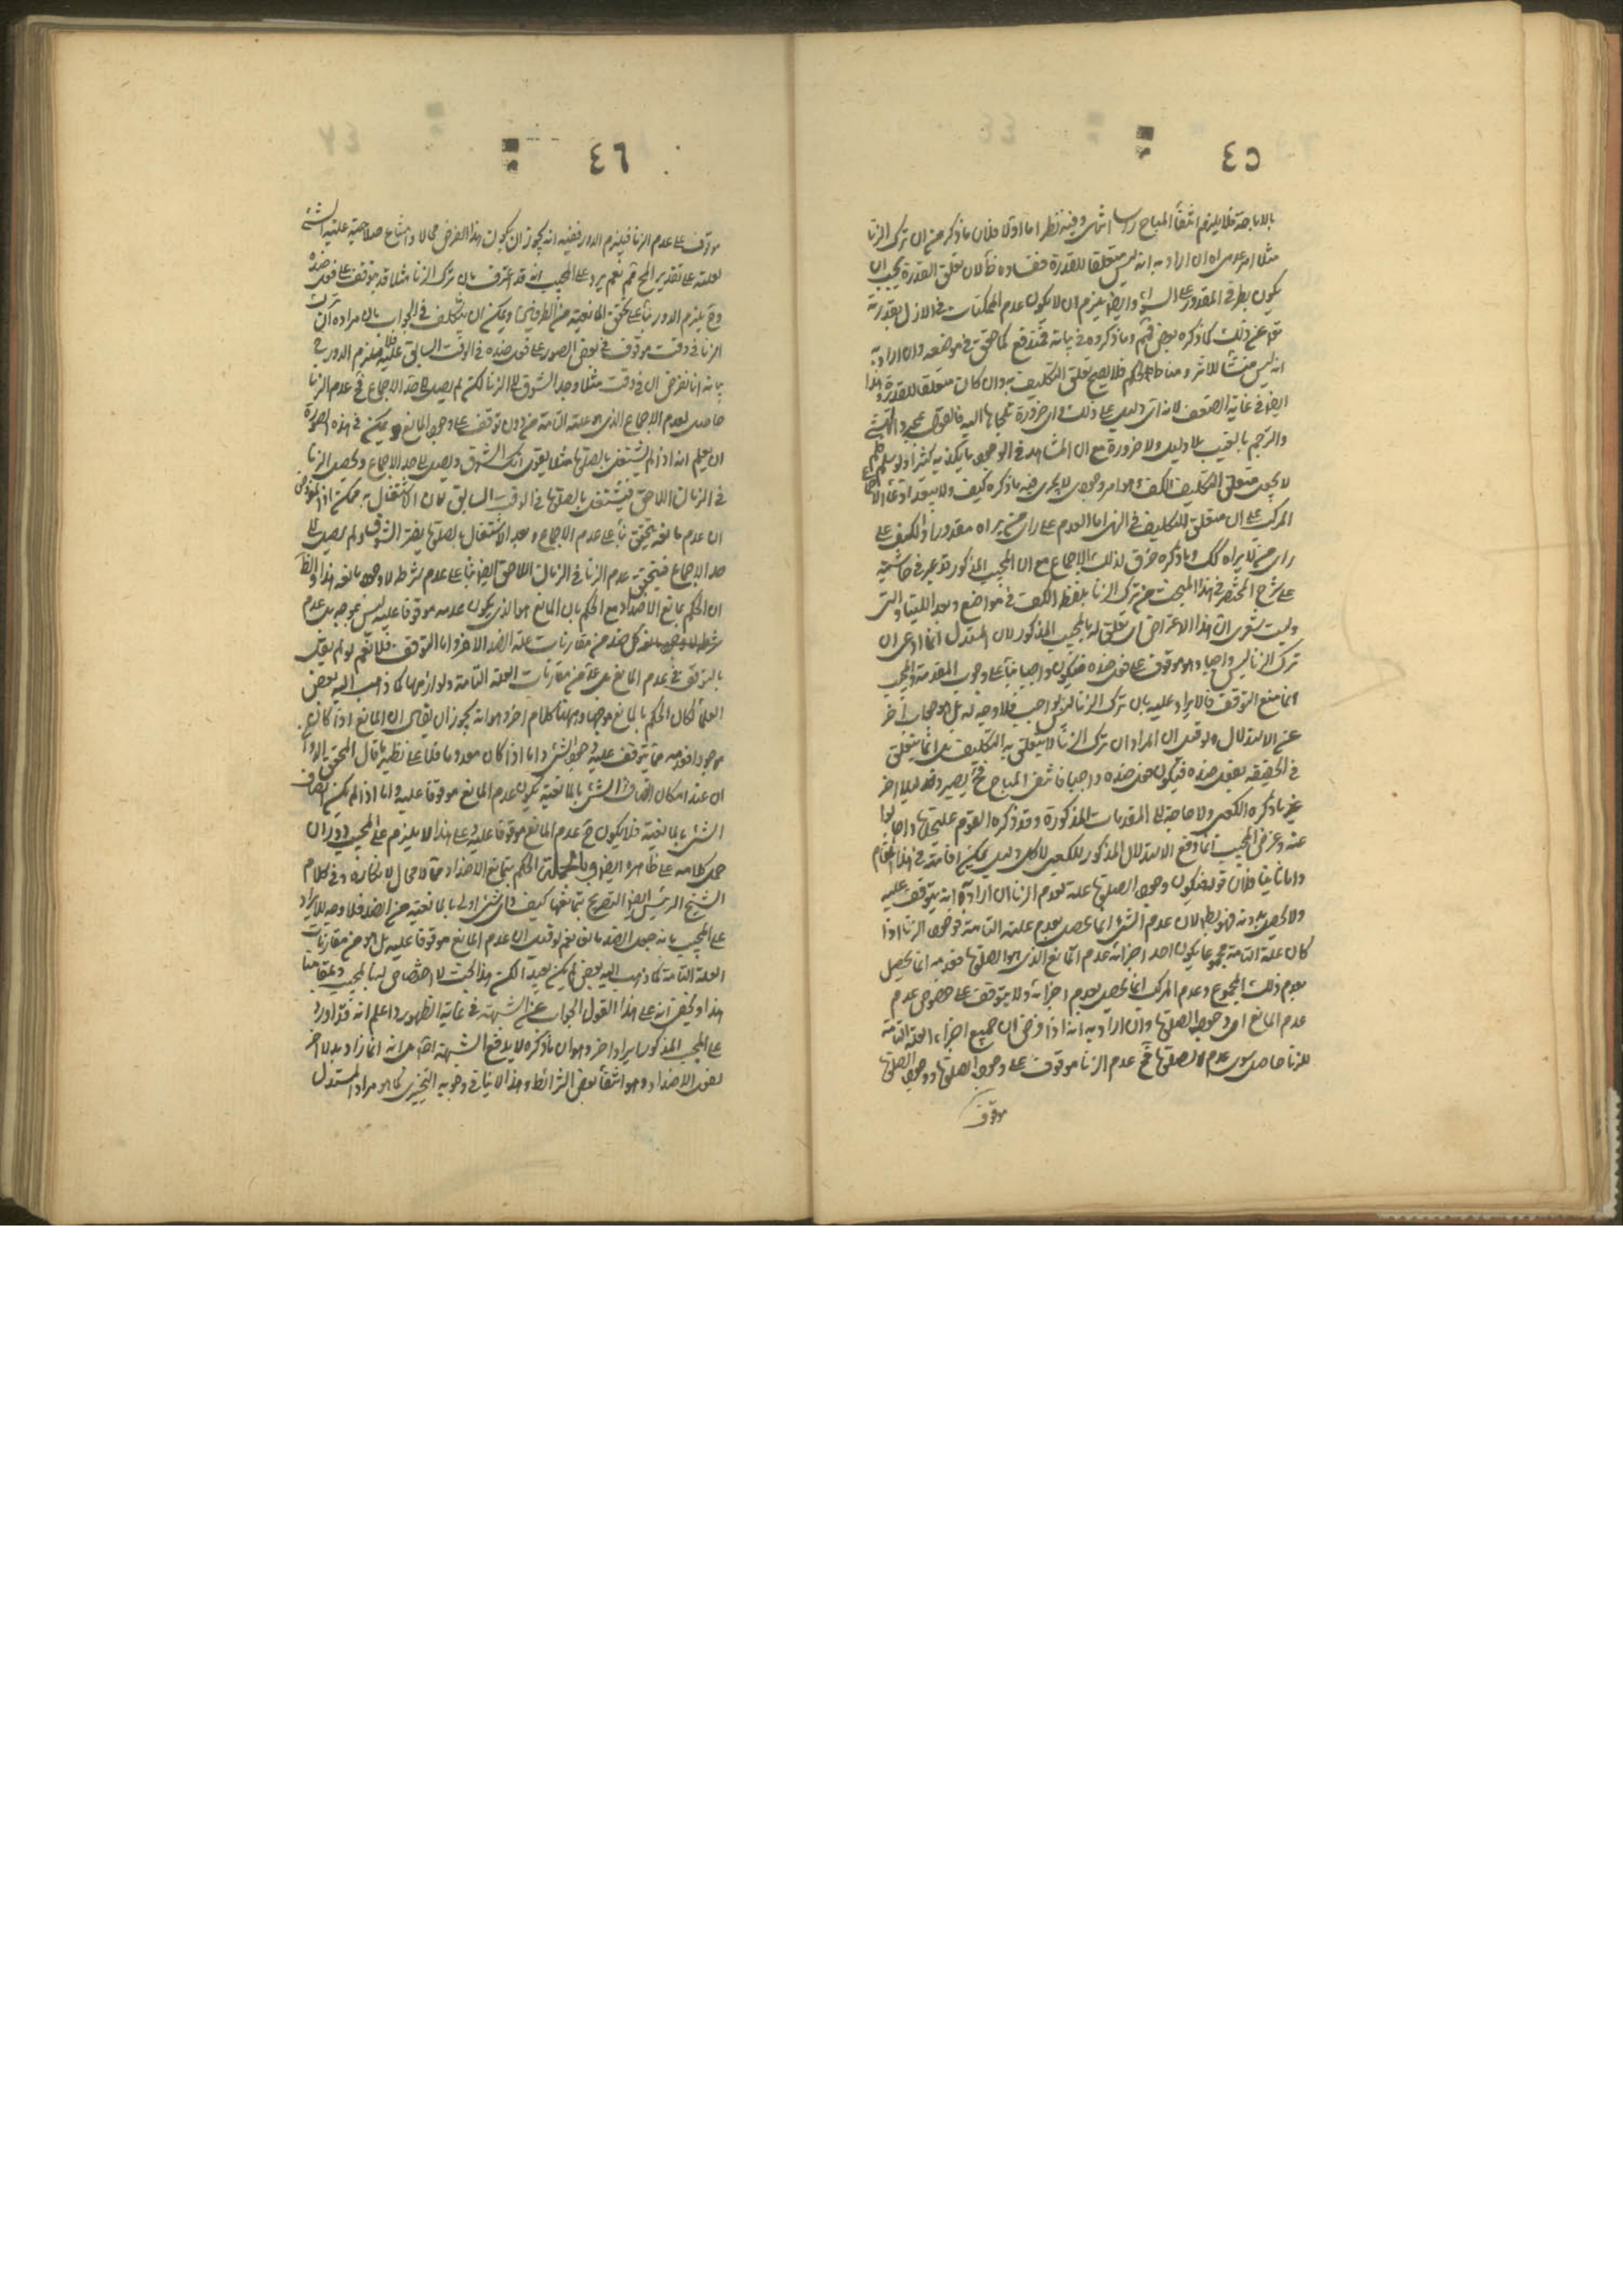 ٤٥
بالاباحة فلا يلزم انتفاء المباح راسا انتهى وفيه نظر اما اولا فلان ما ذكره من ان ترك الزنا
مثلا امر عدمى ان اراد به انه ليس متعلقا للقدرة ففساده ظ لان تعلق القدرة يجب ان
يكون بطرفى المقدور على السواء وايضا يلزم ان لا يكون عدم الممكنات فى الازل بقدرته
تعالى عن ذلك كما ذكره بعضهم وما ذكروه فى بيانه فمندفع كما حقق فى موضعه وان اراد به
انه ليس منشأ للاثر ومناط الحكم فلا يصح تعلق التكليف به وان كان متعلقا للقدرة فهذا
ايضا فى غاية الضعف لانه اى دليل على ذلك واى ضرورة تلجأنا اليه فالقول بمجرد التشهى
والترجم بالغيب بلا دليل ولا ضرورة مع ان المشاهد فى الوجود ما يكذبه كثيرا ولو سلم فلم
لا يجعل متعلق التكليف الكف وهو امر وجودى لا يجرى فيه ما ذكره كيف ولا يبعد ادعاء الاجماع
المركب على ان متعلق التكليف فى النهى اما العدم على راى من يراه مقدورا او الكف على
راى من لا يراه كك وما ذكره خرق لذلك الاجماع مع ان المجيب المذكور قد عبر فى حاشيته
على شرح المختصر فى هذا المبحث عن ترك الزنا بلفظ الكف فى مواضع وبعد اللتيا والتى
وليت شعرى ان هذا الاعتراض اى تعلق له بالمجيب المذكور لان المستدل انما ادعى ان
ترك الزنا ليس واجبا وهو موقوف على فعل ضده فيكون واجبا بناء على وجوب المقدمة والمجيب
انما منع التوقف فالايراد عليه بان ترك الزنا ليس بواجب فلا وجه له بل هو جواب آخر
عن الاستدلال ولو قيل ان المراد ان ترك الزنا لا يتعلق به التكليف بل انما يتعلق
فى الحقيقة بفعل ضده فيكون فعل ضده واجبا فانتفى المباح فح يصير دليلا اخر
غير ما ذكره الكعبى ولا حاجة الى المقدمات المذكورة وقد ذكره القوم عليحدة واجابوا
عنه وغرض المجيب انما دفع الاستدلال المذكور للكعبى لا كل دليل يمكن اقامته فى هذا المقام
واما ثانيا فلان قوله فيكون وجود الصلوة علة لعدم الزنا ان اراد به انه يتوقف عليه
ولا يحصل بدونه فهو بط لان عدم الشئ انما يحصل بعدم علته التامة فوجود الزنا اذا
كان علته التامة مجموعا يكون احد اجزائه عدم المانع الذى هو الصلوة فعدمه انما يحصل
بعدم ذلك المجموع وعدم المركب انما يحصل بعدم اجزائه ولا يتوقف على خصوص عدم
عدم المانع اى وجود الصلوة وان اراد به انه اذا فرض ان جميع اجزاء العلة التامة
للزنا حاصل سوى عدم الصلوة فح عدم الزنا موقوف على وجود الصلوة ووجود الصلوة
موقوف
٤٦
موقوف على عدم الزنا فيلزم الدور ففيه انه يجوز ان يكون هذا الفرض محالا وامتناع صلاحية علية الشئ
لعلته على تقدير المح مم نعم يرد على المجيب انه قد اعترف بان ترك الزنا مثلا قد يتوقف على فعل ضده
وح يلزم الدور بناء على تحقق المانعية من الطرفين ويمكن ان يتكلف فى الجواب بان مراده ان ترك
الزنا فى وقت موقوف فى بعض الصور على فعل ضده فى الوقت السابق عليه فلا يلزم الدور ح
بيانه انا نفرض ان فى وقت مثلا وجد الشوق الى الزنا لكنه لم يصل الى حد الاجماع فح عدم الزنا
حاصل لعدم الاجماع الذى هو علته التامة من دون توقف على وجود المانع ويمكن فى هذه الصورة
ان يعلم انه اذا لم يشتغل بالصلوة مثلا يقوى ذلك الشوق ويصل الى حد الاجماع ويحصل الزنا
فى الزمان اللاحق فيشتغل بالصلوة فى الوقت السابق لان الاشتغال به ممكن اذ المفروض
ان عدم مانعه يتحقق بناء على عدم الاجماع وبعد الاشتغال بالصلوة يفتر الشوق ولم يصل الى
حد الاجماع فيتحقق عدم الزنا فى الزمان اللاحق ايضا بناء على عدم شرطه لا وجود مانعه هذا والظ
ان الحكم بمانع الاضداد مع الحكم بان المانع هو الذى يكون عدمه موقوفا عليه ليس بموجه بل عدم
كل ضد من مقارنات علة الضد الاخر واما التوقف فلا نعم لو لم يقل
بالتوقف فى عدم المانع بل عده من مقارنات العلة التامة ولوازمها كما ذهب اليه بعض
العلماء لكان الحكم بالمانع موجها وههنا كلام اخر وهو انه يجوز ان يقال ان المانع اذا كان
موجودا فعدمه مما يتوقف عليه وجود الشئ واما اذا كان معدوما فلا على نظير ما قال المحقق الدوانى
ان عند امكان اتصاف الشئ بالمانعية يكون عدم المانع موقوفا عليه واما اذا لم يكن اتصاف
الشئ بالمانعية فلا يكون ح عدم المانع موقوفا عليه وعلى هذا لا يلزم على المجيب دور ان
حمل كلامه على ظاهره ايضا وبالجملة الحكم بتمانع الاضداد مما لا مجال لانكاره وفى كلام
الشيخ الرئيس ايضا التصريح بتمانعها كيف واى شئ اولى بالمانعية من الضد فلا وجه للايراد
على المجيب بانه جعل الضد مانعا نعم لو قيل ان عدم المانع موقوفا عليه بل هو من مقارنات
العلة التامة كما ذهب اليه بعض لم يكن بعيدا لكن هذا البحث لا اختصاص له بالمجيب
هذا ولا يخفى انه على هذا القول الجواب عن الشبهة فى غاية الظهور واعلم انه قد اورد
على المجيب المذكور ايراد اخر وهو ان ما ذكره لا يدفع الشبهة اصلا بل انه انما زاد بدلا اخر
لفعل الاضداد وهو انتفاء بعض الشرائط وهذا لا ينافى وجوبه التخييرى كما هو مراد المستدل